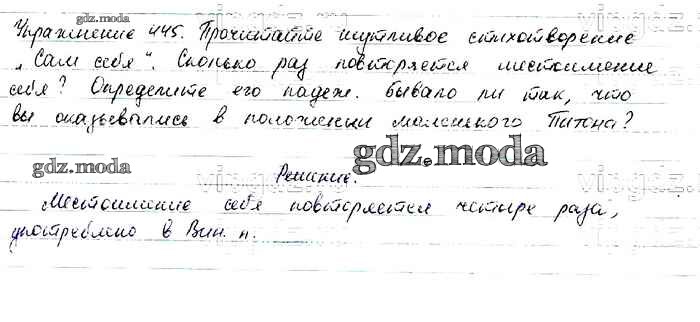 gdz.moda
Упражнение 445. Прочитайте шутливое стихотворение
„Сам себя“. Сколько раз повторяется местоимение
себя? Определите его падеж. Бывало ли так, что
вы оказывались в положении маленького Питона?
gdz.moda
gdz.moda
Решение.
Местоимение себя повторяется четыре раза,
употреблено в Вин. п.
gdz.moda